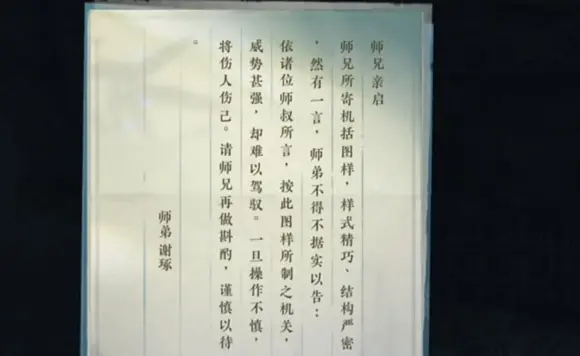 师兄亲启
师兄所寄机括图样，样式精巧、结构严密
，然有一言，师弟不得不据实以告：
依诸位师叔所言，按此图样所制之机关，
威势甚强，却难以驾驭。一旦操作不慎，
将伤人伤己。请师兄再做斟酌，谨慎以待
。
师弟 谢琢